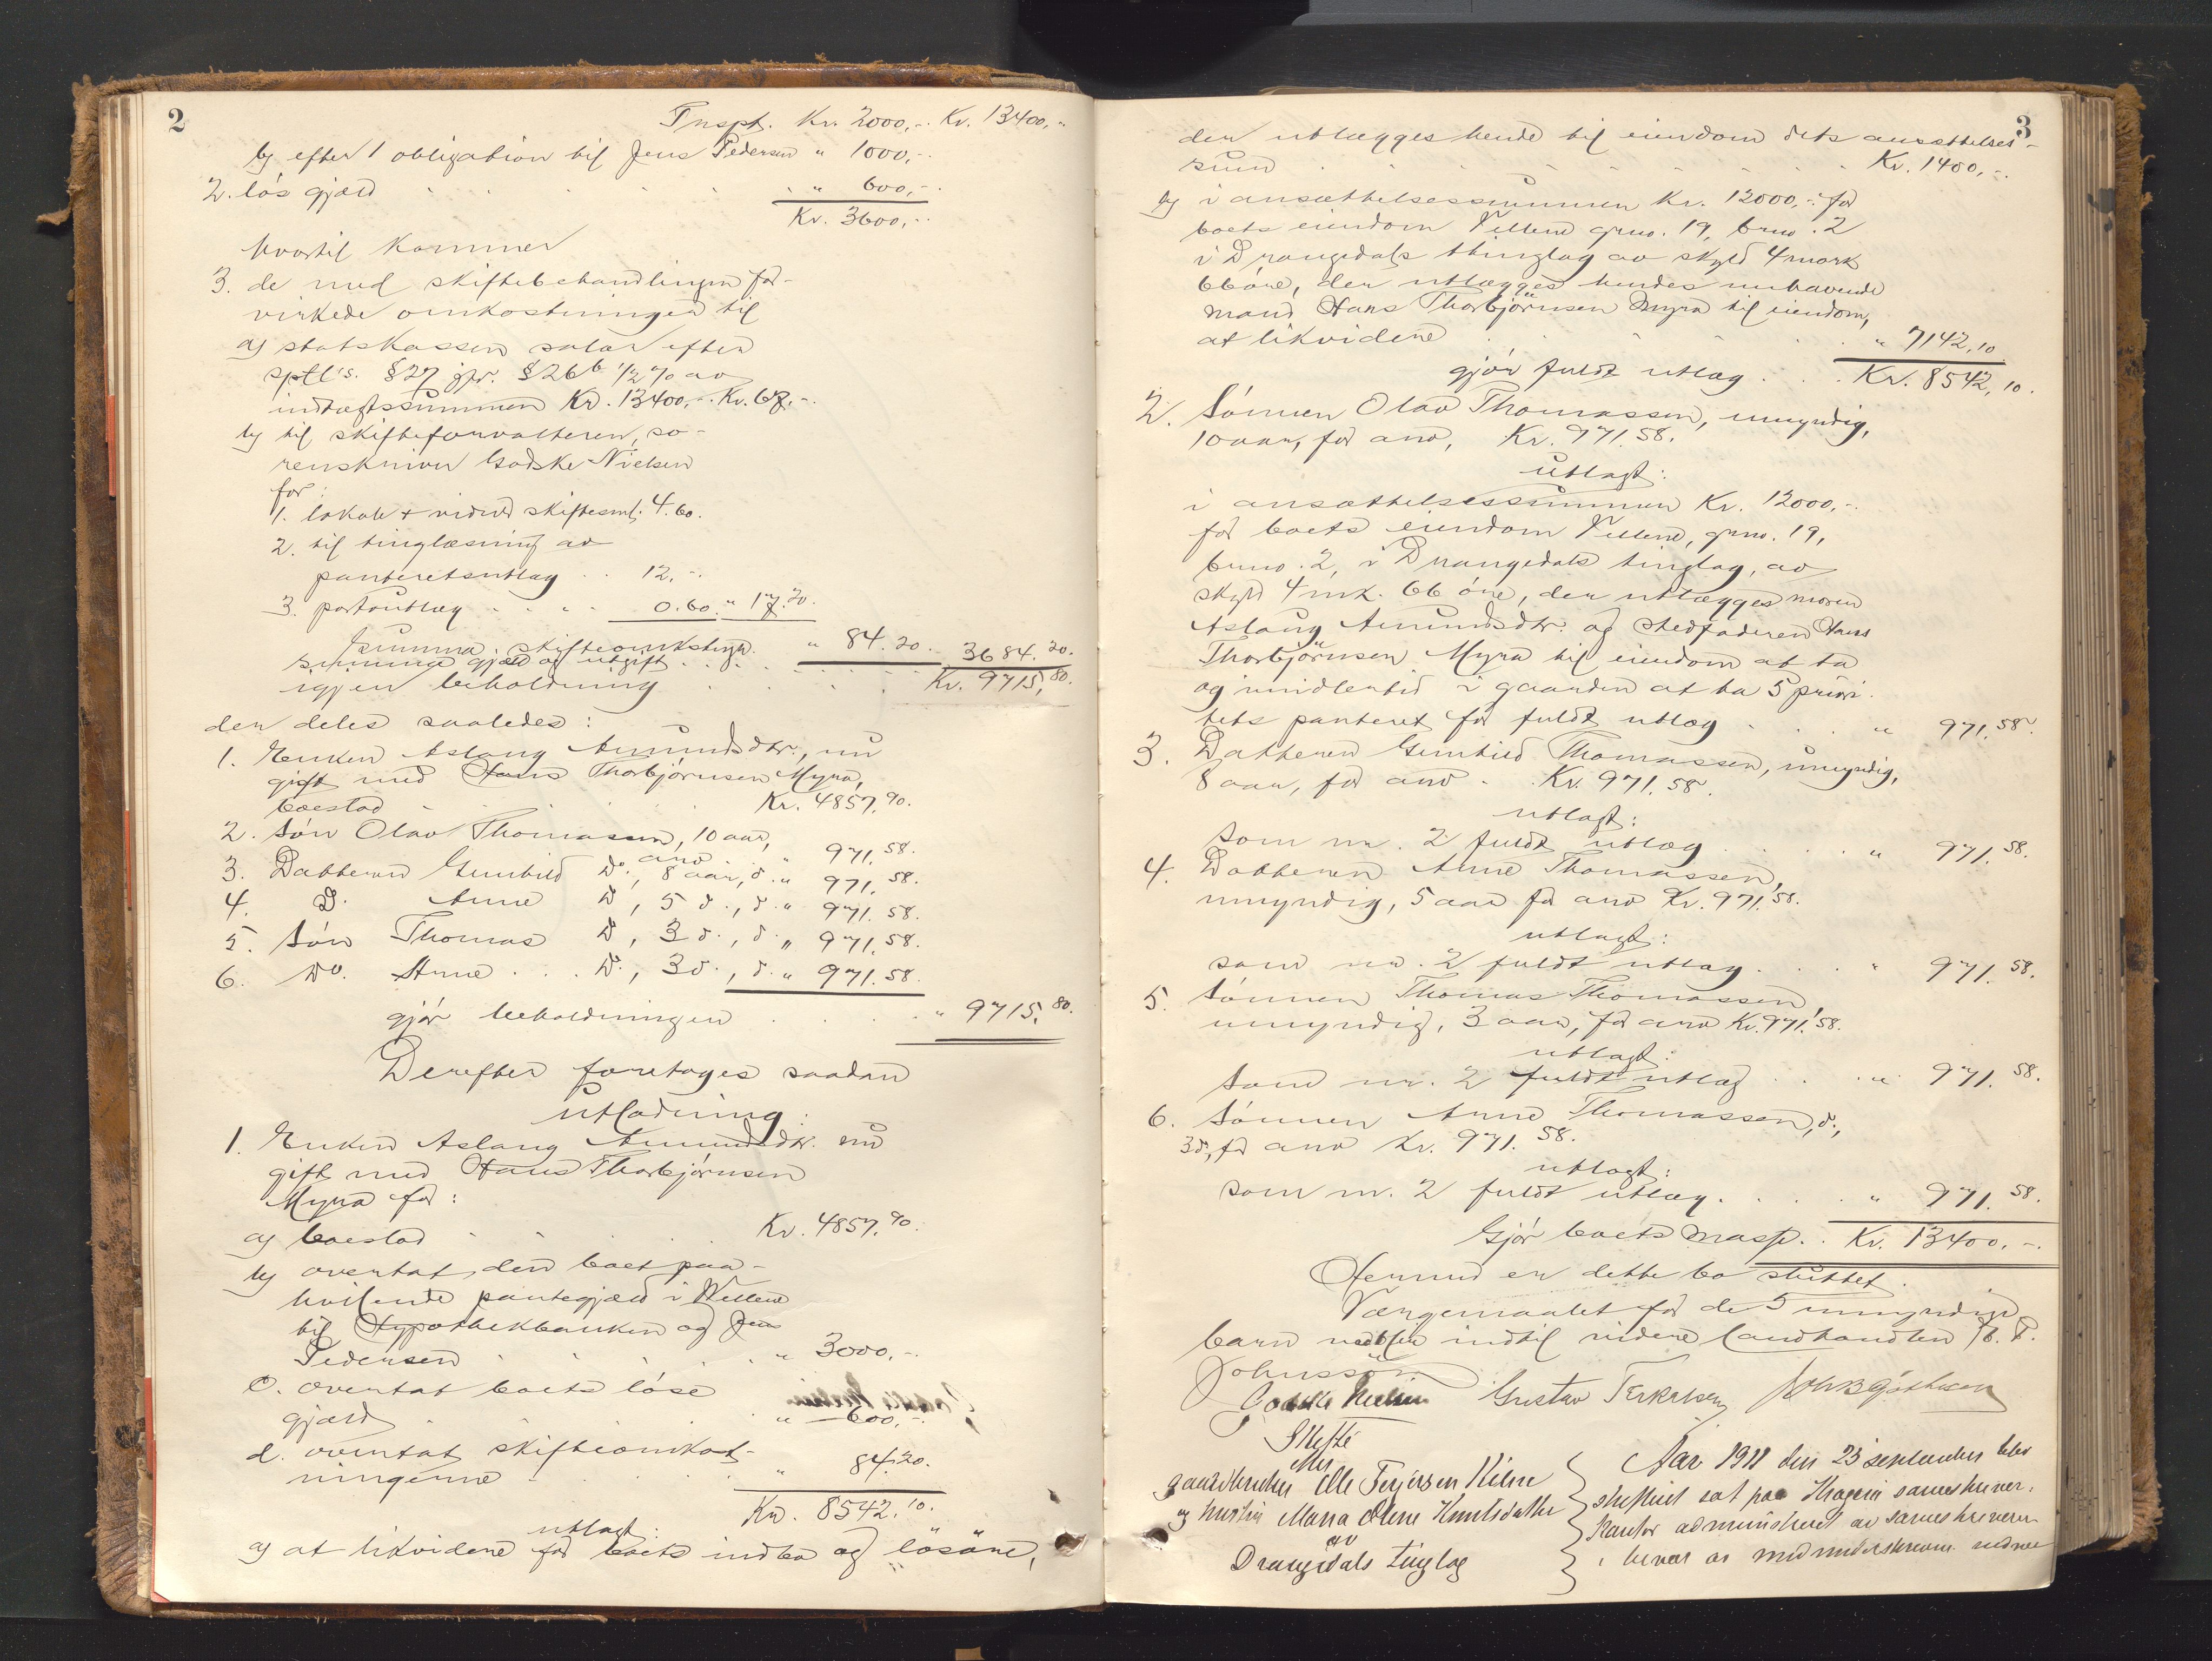 2
Trnspt. Kr. 2000,-. Kr. 13400,-
b) efter 1 obligation til Jens Pedersen " 1000,-.
2. løs gjæld . . . . . " 600,-.
Kr. 3600,-.
hvortil kommer
3. de med skiftebehandlingen for-
virkede omkostninger til
a) statskassen salær efter
sptl's. § 27 jfr. § 26 b ½ % av
indtægtssummen Kr. 13400,-. Kr. 67,-.
b) til skifteforvalteren, so-
renskriver Godske-Nielsen
for:
1. lokale + vidner skiftesml. 4.60.
2. til tinglæsning av
panteretsutlæg . . 12,-.
3. portoutlæg . . . . 0.60. " 17.20.
summa skifteomkstngr. " 84.20.
summa gjæld og utgift . . . . 3684.20.
igjen beholdning . . . . Kr. 9715,80.
der deles saaledes:
1. Enken Aslaug Amundsdtr., nu
gift med Hans Thorbjørnsen Myra,
boeslod . . . . Kr. 4857.90.
2. Søn Olav Thomassen, 10 aar,
arv " 971.58.
3. Datteren Gunhild Do., 8 aar, d. " 971.58.
4. D. Anne D, 5 d., d. " 971.58.
5. Søn Thomas D, 3 d., d. " 971.58.
6. Do. Arne . . . D., 3 d., d. " 971.58.
gjør beholdningen . . . . " 9715,80.
Derefter foretages saadan
utlodning:
1. Enken Aslaug Amundsdtr. nu
gift med Hans Thorbjørnsen
Myra for:
a) boeslod . . . Kr. 4857.90.
b) overtat den boet paa-
hvilende pantegjæld i Vellene
til Hypothekbanken og Jens
Pedersen . . . . " 3000,-.
c. overtat boets løse
gjæld . . . . " 600,-.
d. overtat skifteomkost-
ningerne . . . . " 84.20.
Kr. 8542.10.
utlagt:
a) at likvidere for boets indbo og løsøre,
3
der utlægges hende til eiendom dets ansættelses-
sum . . . . . . Kr. 1400,-.
b) i ansættelsessummen Kr. 12000,-. for
boets eiendom Vellene grno. 19, brno. 2
i Drangedals thinglag av skyld 4 mark
66 øre, der utlægges hendes nuhavende
mand Hans Thorbjørnsen Myra til eiendom,
at likvidere . . . . . " 7142.10
gjør fuldt utlæg . . . Kr. 8542,10.
2. Sønnen Olav Thomassen, umyndig,
10 aar, for arv, Kr. 971.58.
utlagt:
i ansættelsessummen Kr. 12000,-.
for boets eiendom Vellene, grno. 19,
brno. 2, i Drangedals tinglag, av
skyld 4 mk. 66 øre, der utlægges moren
Aslaug Amundsdtr. og stedfaderen Hans
Thorbjørnsen Myra til eiendom at ta
og imidlertid i gaarden at ha 5 priori-
tets panteret for fuldt utlæg . . . " 971.58.
3. Datteren Gunhild Thomassen, umyndig,
8 aar, for arv . . Kr. 971.58.
utlagt:
som nr. 2 fuldt utlæg . . . . " 971.58.
4. Datteren Anne Thomassen,
umyndig, 5 aar for arv Kr. 971.58.
utlagt:
som nr. 2 fuldt utlæg . . . " 971.58.
5. Sønnen Thomas Thomassen,
umyndig, 3 aar, for arv Kr. 971.58.
utlagt:
som nr. 2 fuldt utlæg . . . " 971.58.
6. Sønnen Arne Thomassen, d.,
3 d., for arv Kr. 971.58.
utlagt:
som nr. 2 fuldt utlæg . . . . " 971.58.
Gjør boets masse . . Kr. 13400.-.
Hermed er dette bo sluttet.
Værgemaalet for de 5 umyndige
barn indtil videre landhandler
Johnsson
Godske Nielsen Gustav Terkelsen
Skifte
efter
gaardbruker Ole Terjersen
og hustru Maria Olene Knutsdatter
av
Drangedals tinglag
Aar 1911 den 23 september blev
skifteret sat paa Kragerø sorenskriver-
kontor administreret av sorenskriveren
i nærvær av medunderskrevne vidner